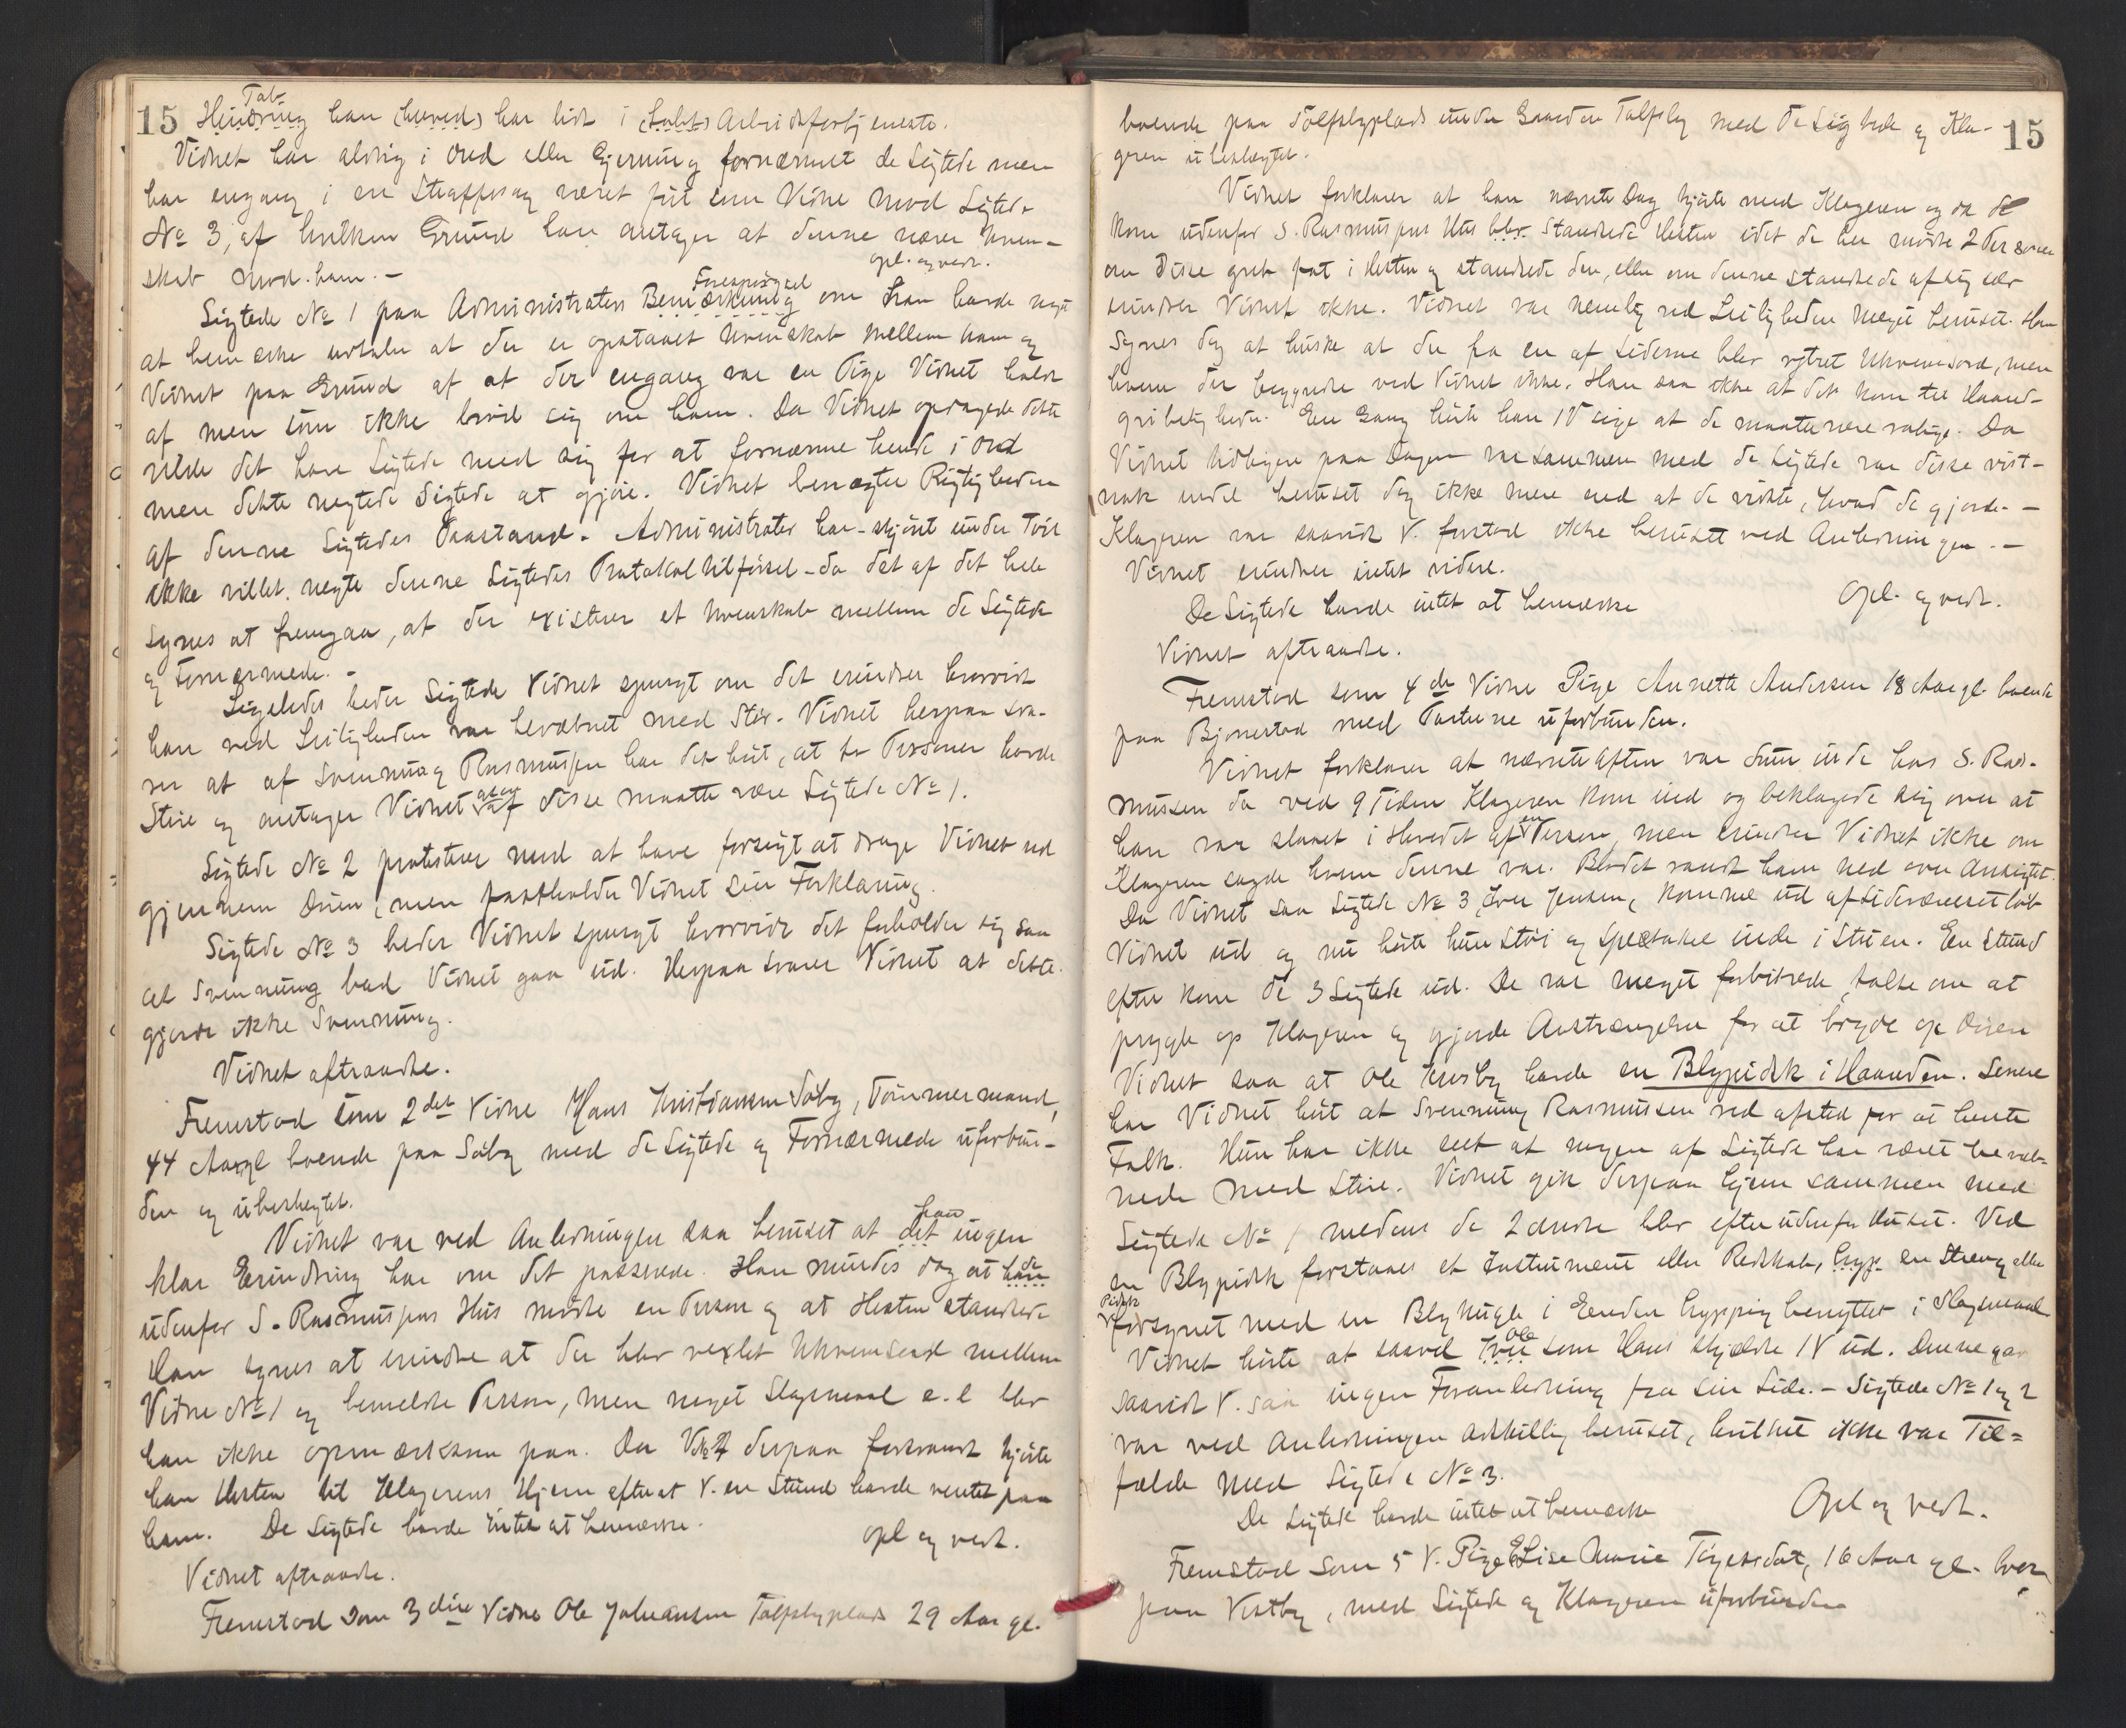 15
Tab
Hindring han (herved) har lidt i (Tabt) Arbeidsfortjeneste.
Vidnet har aldrig i Ord eller Gjerning fornærmet de Sigtede men
har engang i en Straffesag været ført som Vidne mod Sigtede
No 3, af hvilken Grund han antager at denne nærer Uven-
skab mod ham. –
opl. og vedt.
Forespørgsel
Sigtede No 1 paa Administrators Bemærkning om han havde noget
at bemærke udtaler at der er opstaaet Uvenskab mellem ham og
Vidnet paa Grund af at der engang var en Pige Vidnet holdt
af men som ikke brød sig om ham. Da Vidnet opdagede dette
vilde det have Sigtede med sig for at fornærme hende i Ord
men dette negtede Sigtede at gjøre. Vidnet benægter Rigtigheden
af denne Sigtedes Paastand. Administrator har skjønt under Tvil
ikke villet negte denne Sigtedes Protokoltilførsel – da det af det hele
synes at fremgaa, at der existerer et Uvenskab mellem de Sigtede
og Fornærmede. –
Ligeledes beder Sigtede Vidnet spurgt om det erindrer hvorvidt
han ved Leiligheden var bevæbnet med Stør. Vidnet herpaa sva-
rer at af Svennung Rasmussen har det hørt, at to Personer havde
Støre og antager Vidnet at en af disse maatte være Sigtede No 1.
Sigtede No 2 protesterer mod at have forsøgt at drage Vidnet ud
gjennem Døren, men fastholder Vidnet sin Forklaring.
Sigtede No 3 beder Vidnet spurgt hvorvidt det forholder sig saa
at Svennung bad Vidnet gaa ud. Herpaa svarer Vidnet at dette
gjorde ikke Svennung.
Vidnet aftraadte.
Fremstod som 2det Vidne Hans Kristiansen Søby, Tømmermand,
44 Aar gl boende paa Søby med de Sigtede og Fornærmede uforbun-
den og ubeslægtet.
han
Vidnet var ved Anledningen saa beruset at det ingen
klar Erindring har om det passerede. Han mindes dog at han de
udenfor S. Rasmussens Hus mødte en Person og at Hesten standsede
Han synes at erindre at der blev vexlet Ukvemsord mellem
Vidne No 1 og bemeldte Person, men noget Slagsmaal e. l blev
han ikke opmærksom paa. Da V. No 1 derpaa forsvandt kjørte
han Hesten til Klagerens Hjem efterat V. en Stund havde ventet paa
ham. De Sigtede havde intet at bemærke.
opl og vedt.
Vidnet aftraadte.
Fremstod som 3die Vidne Ole Johansen Tolfsbyplads 29 Aar gl.
15
boende paa Tolfsbyplads under Gaarden Tolfsby med de Sigtede og Kla-
geren ubeslægtet.
Vidnet forklarer at han nævnte Dag kjørte med Klageren og da de
kom udenfor S. Rasmussens Hus blev standsede Hesten idet de her mødte 2 Personer
om disse greb fat i Hesten og standsede den, eller om denne standsede af sig selv
erindrer Vidnet ikke. Vidnet var nemlig ved Leiligheden meget beruset. Han
synes dog at huske at der fra en af Siderne blev ytret Ukvemsord, men
hvem der begyndte ved Vidnet ikke. Han saa ikke at det kom til Haand-
gribeligheder. En Gang hørte han 1 V sige at de maatte være rolige. Da
Vidnet tidligere paa Dagen var sammen med de Sigtede var disse vist-
nok endel beruset dog ikke mere end at de vidste, hvad de gjorde. –
Klageren var saavidt V. forstod ikke beruset ved Anledningen. –
Vidnet erindrer intet videre.
De Sigtede havde intet at bemærke
opl. og vedt.
Vidnet aftraadte.
Fremstod som 4de Vidne Pige Annette Andersen 18 Aar gl. boende
paa Bjønestad med Parterne uforbunden.
Vidnet forklarer at nævnte Aften var hun inde hos S. Ras-
mussen da ved 9 Tiden Klageren kom ind og beklagede sig over at
han var slaaet i Hovedet af en Person, men erindrer Vidnet ikke om
Klageren sagde hvem denne var. Blodet randt ham ned over Ansigtet.
Da Vidnet saa Sigtede No 3, Iver Jensen, komme ud af Sideværelset løb
Vidnet ud og nu hørte hun Støi og Spektakel inde i Stuen. En Stund
efter kom de 3 Sigtede ud. De var meget forbitrede, talte om at
prygle op Klageren og gjorde Anstrængelser for at bryde op Døren
Vidnet saa at Ole Huseby havde en Blypidsk i Haanden. Senere
har Vidnet hørt at Svennung Rasmussen red afsted for at hente
Folk. Hun har ikke seet at nogen af Sigtede har været bevæb-
nede med Støre. Vidnet gik derpaa hjem sammen med
Sigtede No 1 medens de 2 andre blev efter udenfor Huset. Ved
en Blypidsk forstaaes et Instrument eller Redskab, hyp. en Streng eller
Pidsk
forsynet med en Blykugle i Enden hyppig benyttet i Slagsmaal
Ole
Vidnet hørte at saavel Iver som Hans skjældte 1 V ud. Denne gav
saavidt V. saa ingen Foranledning fra sin Side. – Sigtede No 1 og 2
var ved Anledningen adskillig beruset, hvilket ikke var Til-
fælde med Sigtede No 3.
De Sigtede havde intet at bemærke
Opl og vedt.
Fremstod som 5 V. Pige Elise Marie Tigesdat, 16 Aar gl.
paa Vestby, med Sigtede og Klageren uforbunden